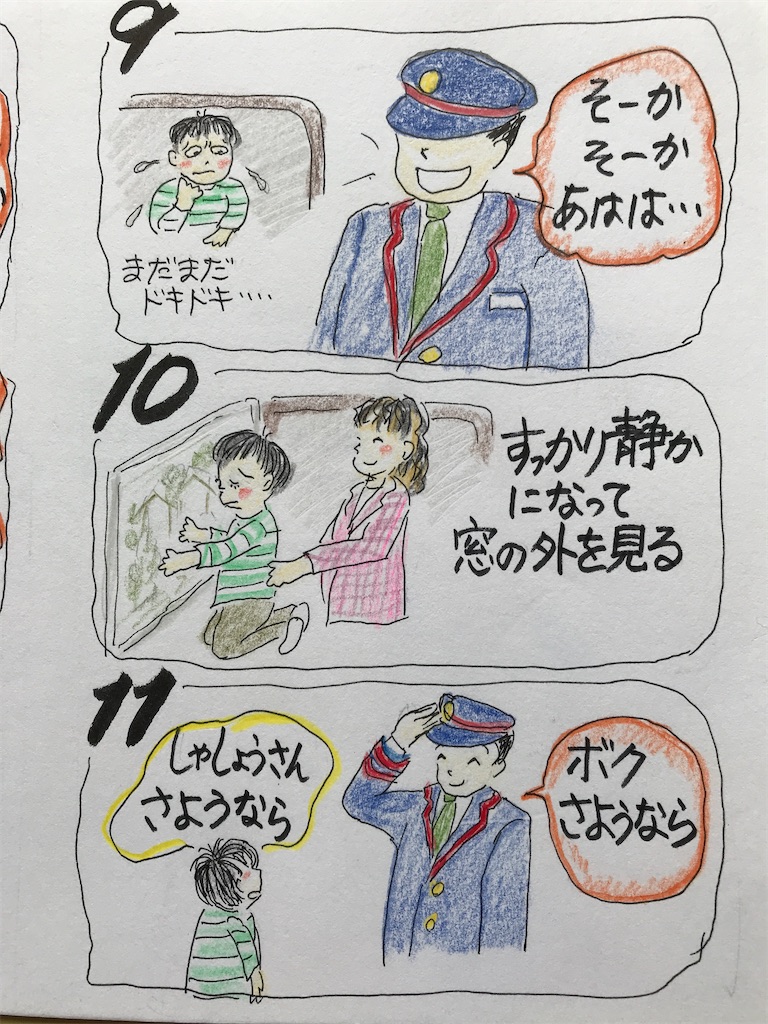 9
そーか
そーか
あはは…
まだまだ
ドキドキ‥‥
10
すっかり静か
になって
窓の外を見る
11
しゃしょうさん
さようなら
ボク
さようなら